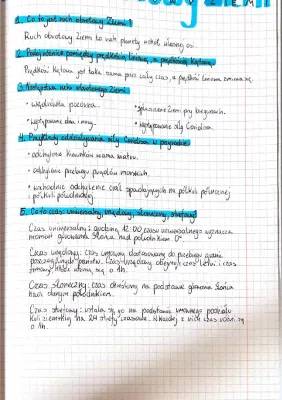 1. Co to jest ruch obrotowy Ziemi?
Ruch obrotowy Ziemi to ruch planety wokół własnej osi.
2. Podaj różnice pomiędzy prędkością liniową, a prędkością kątową.
Prędkość kątowa jest taka sama przez cały czas, a prędkość liniowa zmienia się.
3. Następstwa ruchu obrotowego Ziemi
• wędrówka pozorna • spłaszczenie Ziemi przy biegunach.
• występowanie dnia i nocy. • występowanie siły Coriolisa.
4. Przykłady oddziaływania siły Coriolisa w przyrodzie
• odchylenie kierunków marszu wiatru.
• odchylenie przebiegu prądów morskich.
• wschodnie odchylenie ciał spadających na półkuli północnej
i półkuli południowej.
5. Co to czas: uniwersalny, urzędowy, słoneczny, strefowy?
Czas uniwersalny: godzinę 12:00 czasu uniwersalnego wyznacza
moment górowania Słońca nad południkiem 0°
Czas urzędowy: czas umowny dostosowany do przebiegu granic
poszczególnych państw. Czas urzędowy obejmuje czas letni i czas
zimowy które różnią się o 1h.
Czas słoneczny: czas określony na podstawie górowania Słońca
nad danym południkiem.
Czas strefowy: ustala się go na podstawie umownego podziału
kuli ziemskiej na 24 strefy czasowe. W każdej z nich czas różni się
o 1h.